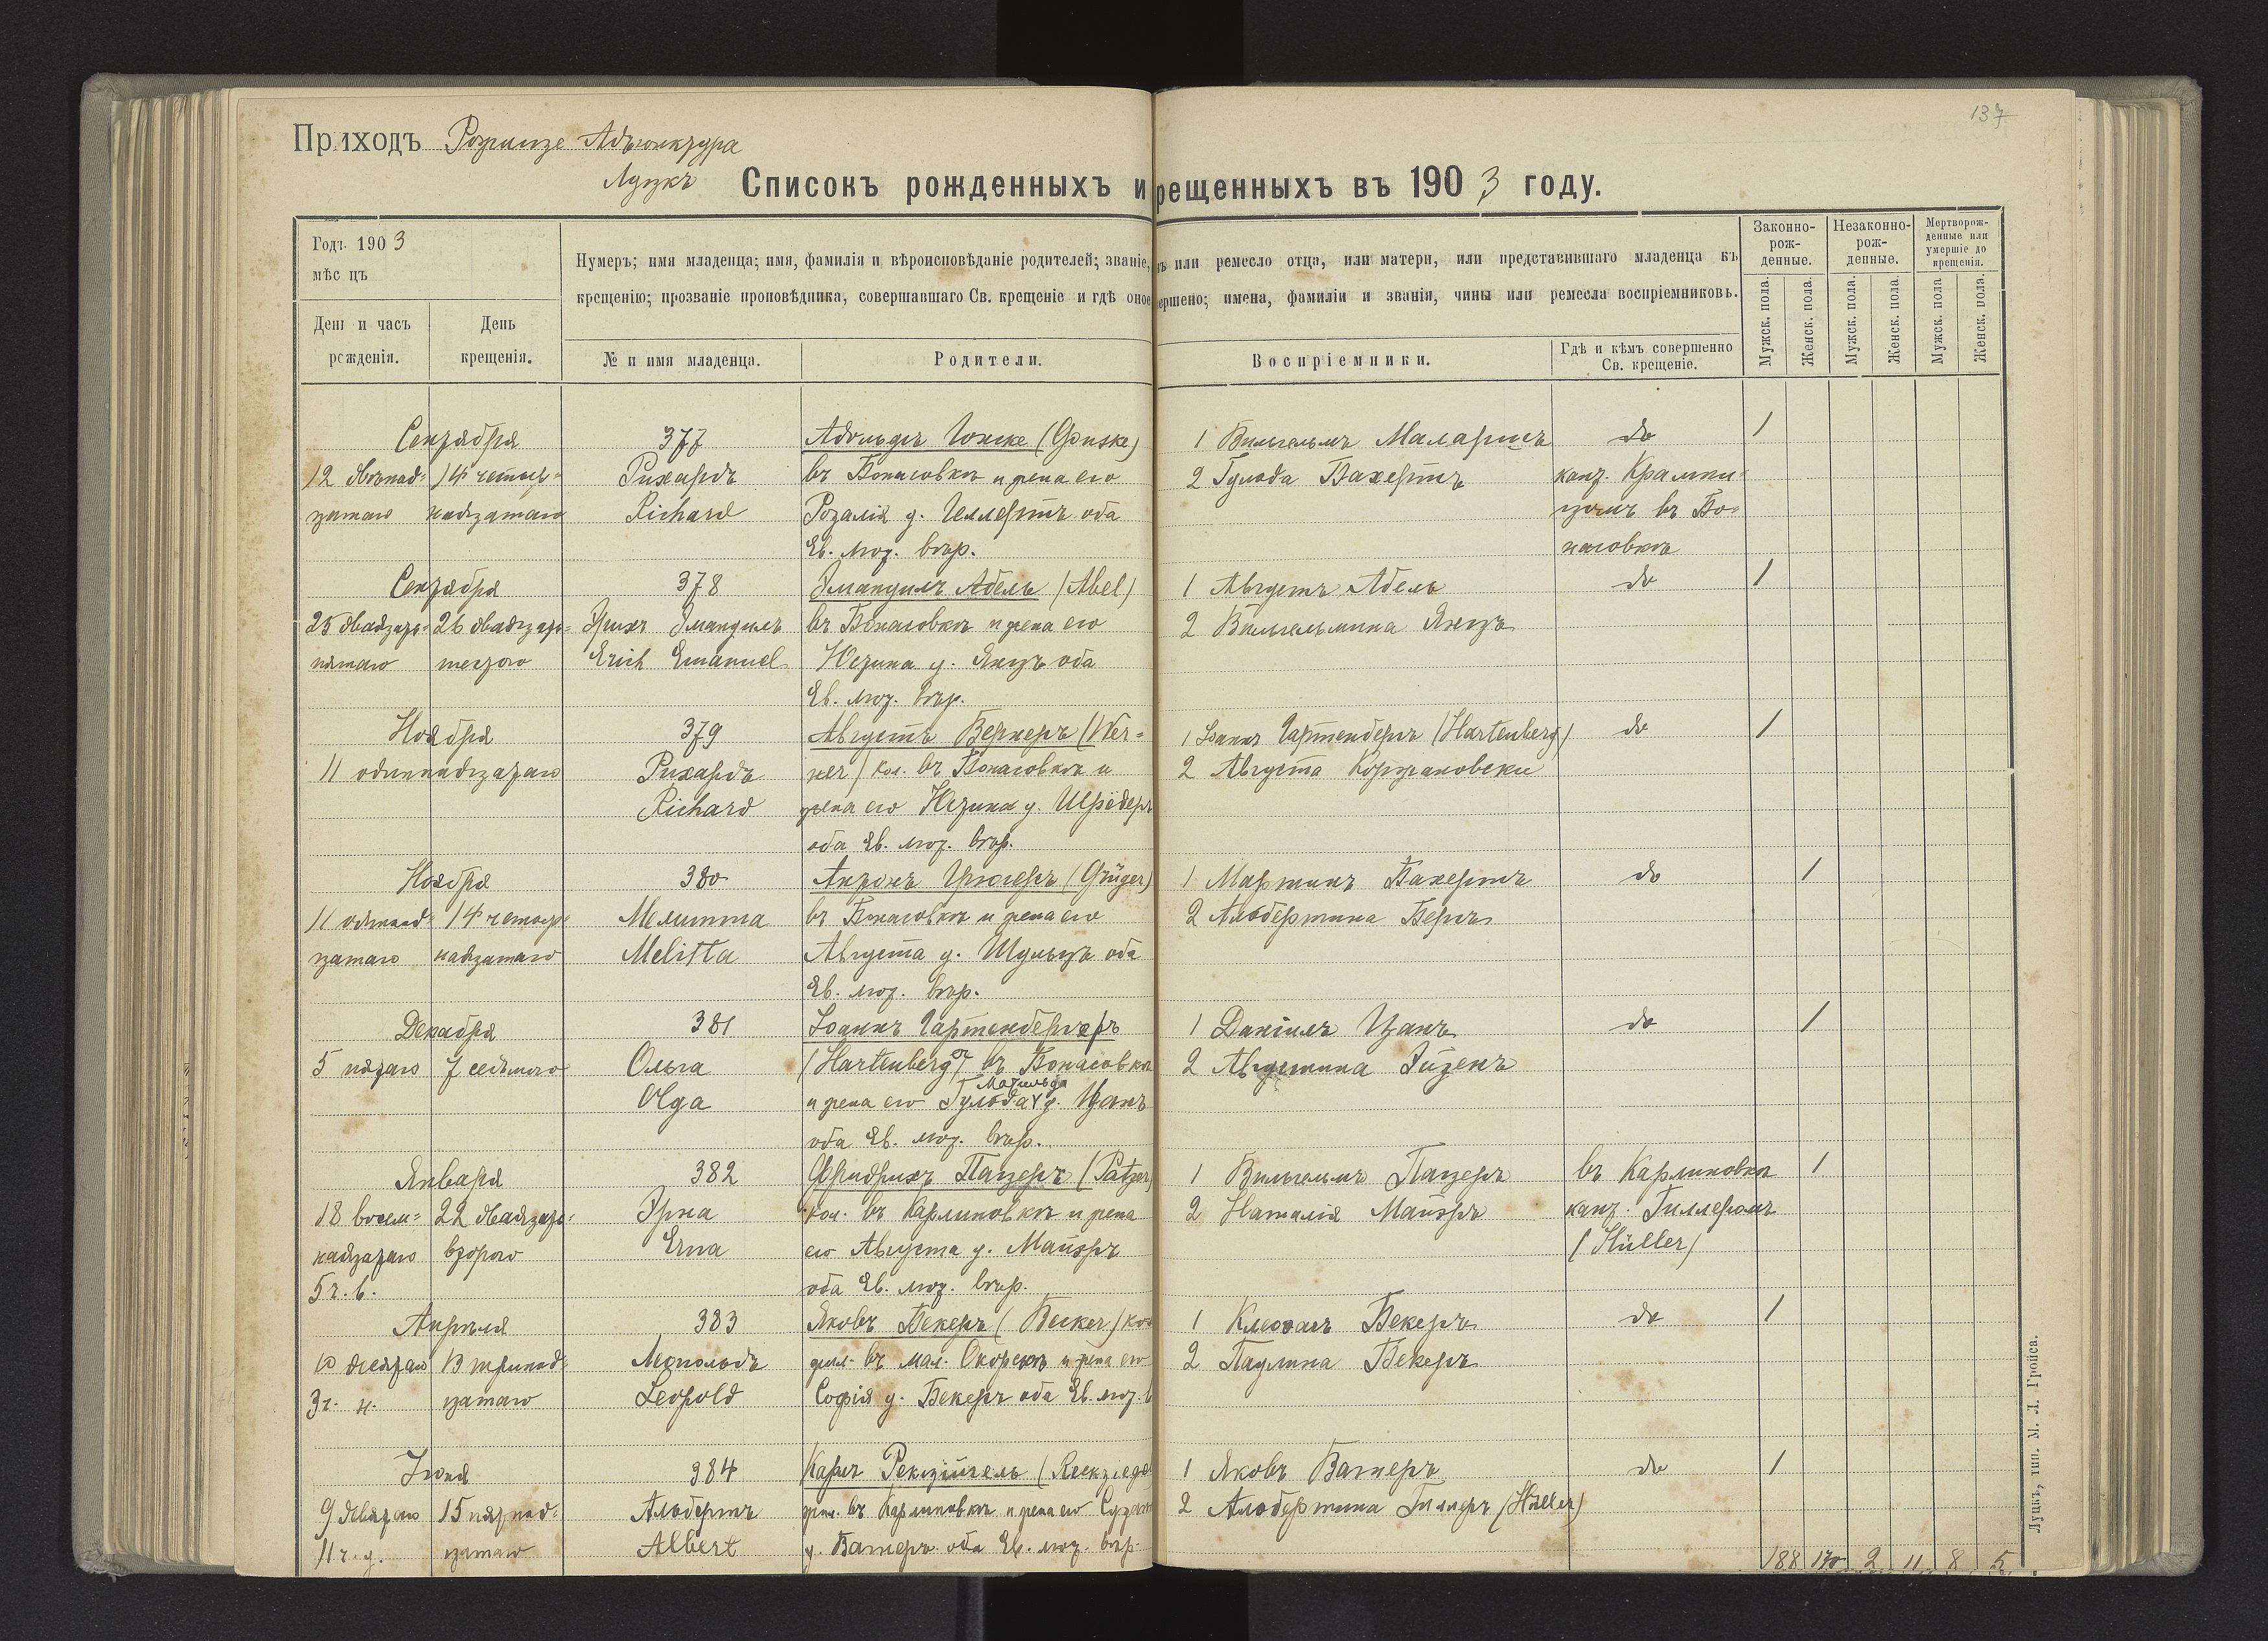 137
Приходъ Рожище Адъюнктура
Луцкъ
Списокъ рожденныхъ и рещенныхъ въ 1903 году.
Годъ 1903
мѣс цъ
День и часъ рожденія.
День крещенія.
Нумеръ; имя младенца; имя, фамилія и вѣроисповѣданіе родителей; званіе, ъ или ремесло отца, или матери, или представившаго младенца къ
крещенію; прозваніе проповѣдника, совершавшаго Св. крещеніе и гдѣ оное ершено; имена, фамиліи и званія, чины или ремесла воспріемниковъ.
№ и имя младенца.
Родители.
Воспріемники.
Гдѣ и кѣмъ совершенно Св. крещеніе.
Законно-рож-денные.
Незаконно-рож-денные.
Мертворож-денные или умершіе до крещенія.
Мужск. пола.
Женск. пола.
Мужск. пола.
Женск. пола.
Мужск. пола.
Женск. пола.
Сентября 377 Адольфъ Гонске (Gonske) 1 Вильгельмъ до 1
12 двѣнад= 14 четыр= Рихардъ въ Бонасовкѣ и жена его 2 Гульда Бахертъ кант.
цатаго надцатаго Richard Розалія у. Геллертъ оба въ Бо=
Ев. лют. вѣр. насовкѣ
Сентября 378 Эмануилъ Абель (Abel) 1 Августъ Абель до 1
25 двадцать= 26 двадцать= Эрихъ Эмануилъ въ Бонасовкѣ и жена его 2 Вильгельмина Янцъ
пятаго шестого Erich Emanuel Юстина у. Янцъ оба
Ев. лют. вѣр.
Ноября 379 Августъ Вернеръ (Wer= 1 Іоаннъ Гартенбергъ (Hartenberg) до 1
11 одиннадцатаго Рихардъ ner) кол. въ Бонасовкѣ и 2 Августа
Richard жена его Юстина у. Шрёдеръ
оба Ев. лют. вѣр.
Ноября 380 Антонъ Грюгеръ (Grüger) 1 Мартинъ Бахертъ до 1
11 одиннад= 14 четыр= Мелитта въ Бонасовкѣ и жена его 2 Альбертина Бергъ
цатаго надцатаго Melitta Августа у. Шульцъ оба
Ев. лют. вѣр.
Декабря 381 Іоаннъ Гартенбергеръ 1 Даніилъ Цанъ до 1
5 пятаго 7 седьмого Ольга (Hartenberger) въ Бонасовкѣ 2 Августина
Olga и жена его Гульда Матильда у. Цанъ
оба Ев. лют. вѣр.
Января 382 Фридрихъ Пацеръ (Patzer) 1 Вильгельмъ Пацеръ въ Карлиновкѣ 1
18 восем= 22 двадцать= Эрна кол. въ Карлиновкѣ и жена 2 Наталія Майеръ кант. Гиллеромъ
надцатаго второго Erna его Августа у. Майеръ (Hüller)
5 ч. в. оба Ев. лют. вѣр.
Апрѣля 383 Яковъ Бекеръ (Becker) кол 1 Бекеръ до 1
10 десятаго 13 тринад= Леополодъ въ мал. и жена его 2 Паулина Бекеръ
3 ч. н. цатаго Leopold Софія у. Бекеръ оба Ев. лют. в
Іюня 384 Карлъ Рекцигель (Reckziegel 1 Яковъ Вагнеръ до 1
9 девятаго 15 пятнад= Альбертъ въ Карлиновкѣ и жена его 2 Альбертина Гиллеръ (Hüller)
11 ч. у. цатаго Albert у. Вагнеръ оба Ев. лют. вѣр.
188 170 2 11 8 5
Луцкъ, тип. М. Л. Гройса.